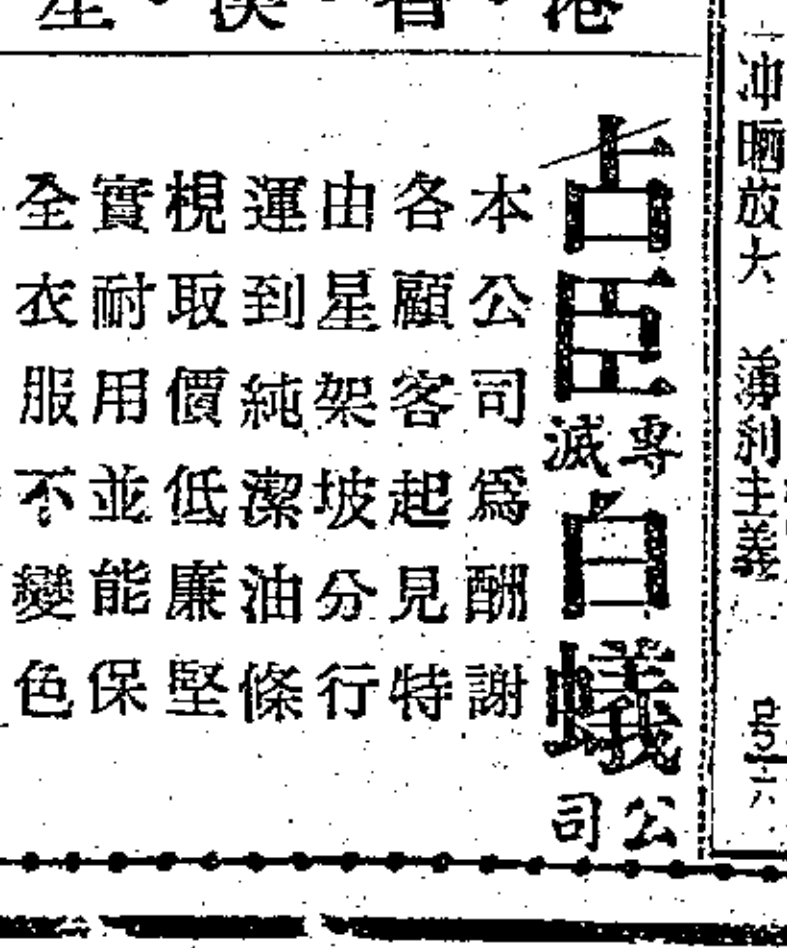 冲晒放大 薄利主義
古臣專滅白蟻公司
本公司爲酬謝
各顧客起見特
由星架坡分行
運到純潔油條
梘取價低廉堅
實耐用並能保
全衣服不變色